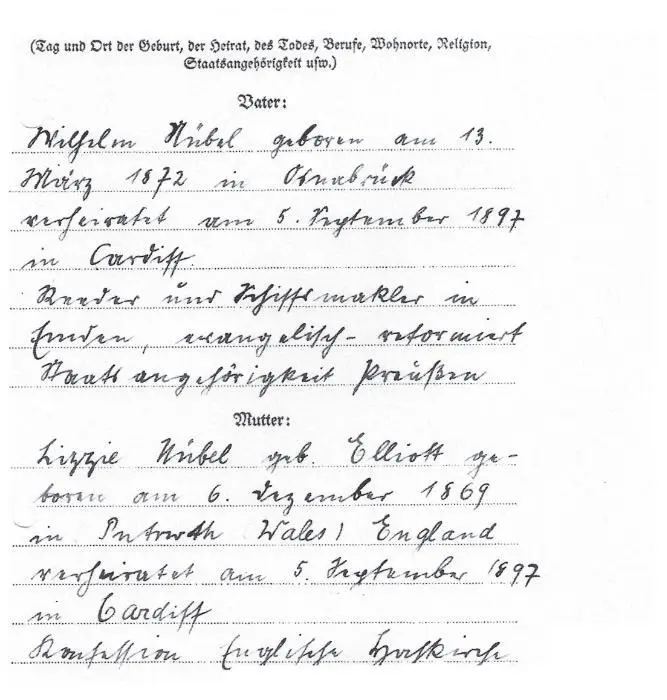 (Tag und Ort der Geburt, der Heirat, des Todes, Berufe, Wohnorte, Religion,
Staatsangehörigkeit usw.)
Vater:
Wilhelm Nübel geboren am 13.
März 1872 in Osnabrück
verheiratet am 5. September 1897
in Cardiff.
Reeder und Schiffsmakler in
Emden, evangelisch-reformiert
Staatsangehörigkeit Preußen
Mutter:
Lizzie Nübel geb. Elliott ge-
boren am 6. Dezember 1869
in Wales) England
verheiratet am 5. September 1897
in Cardiff
Konfession Englische Hochkirche